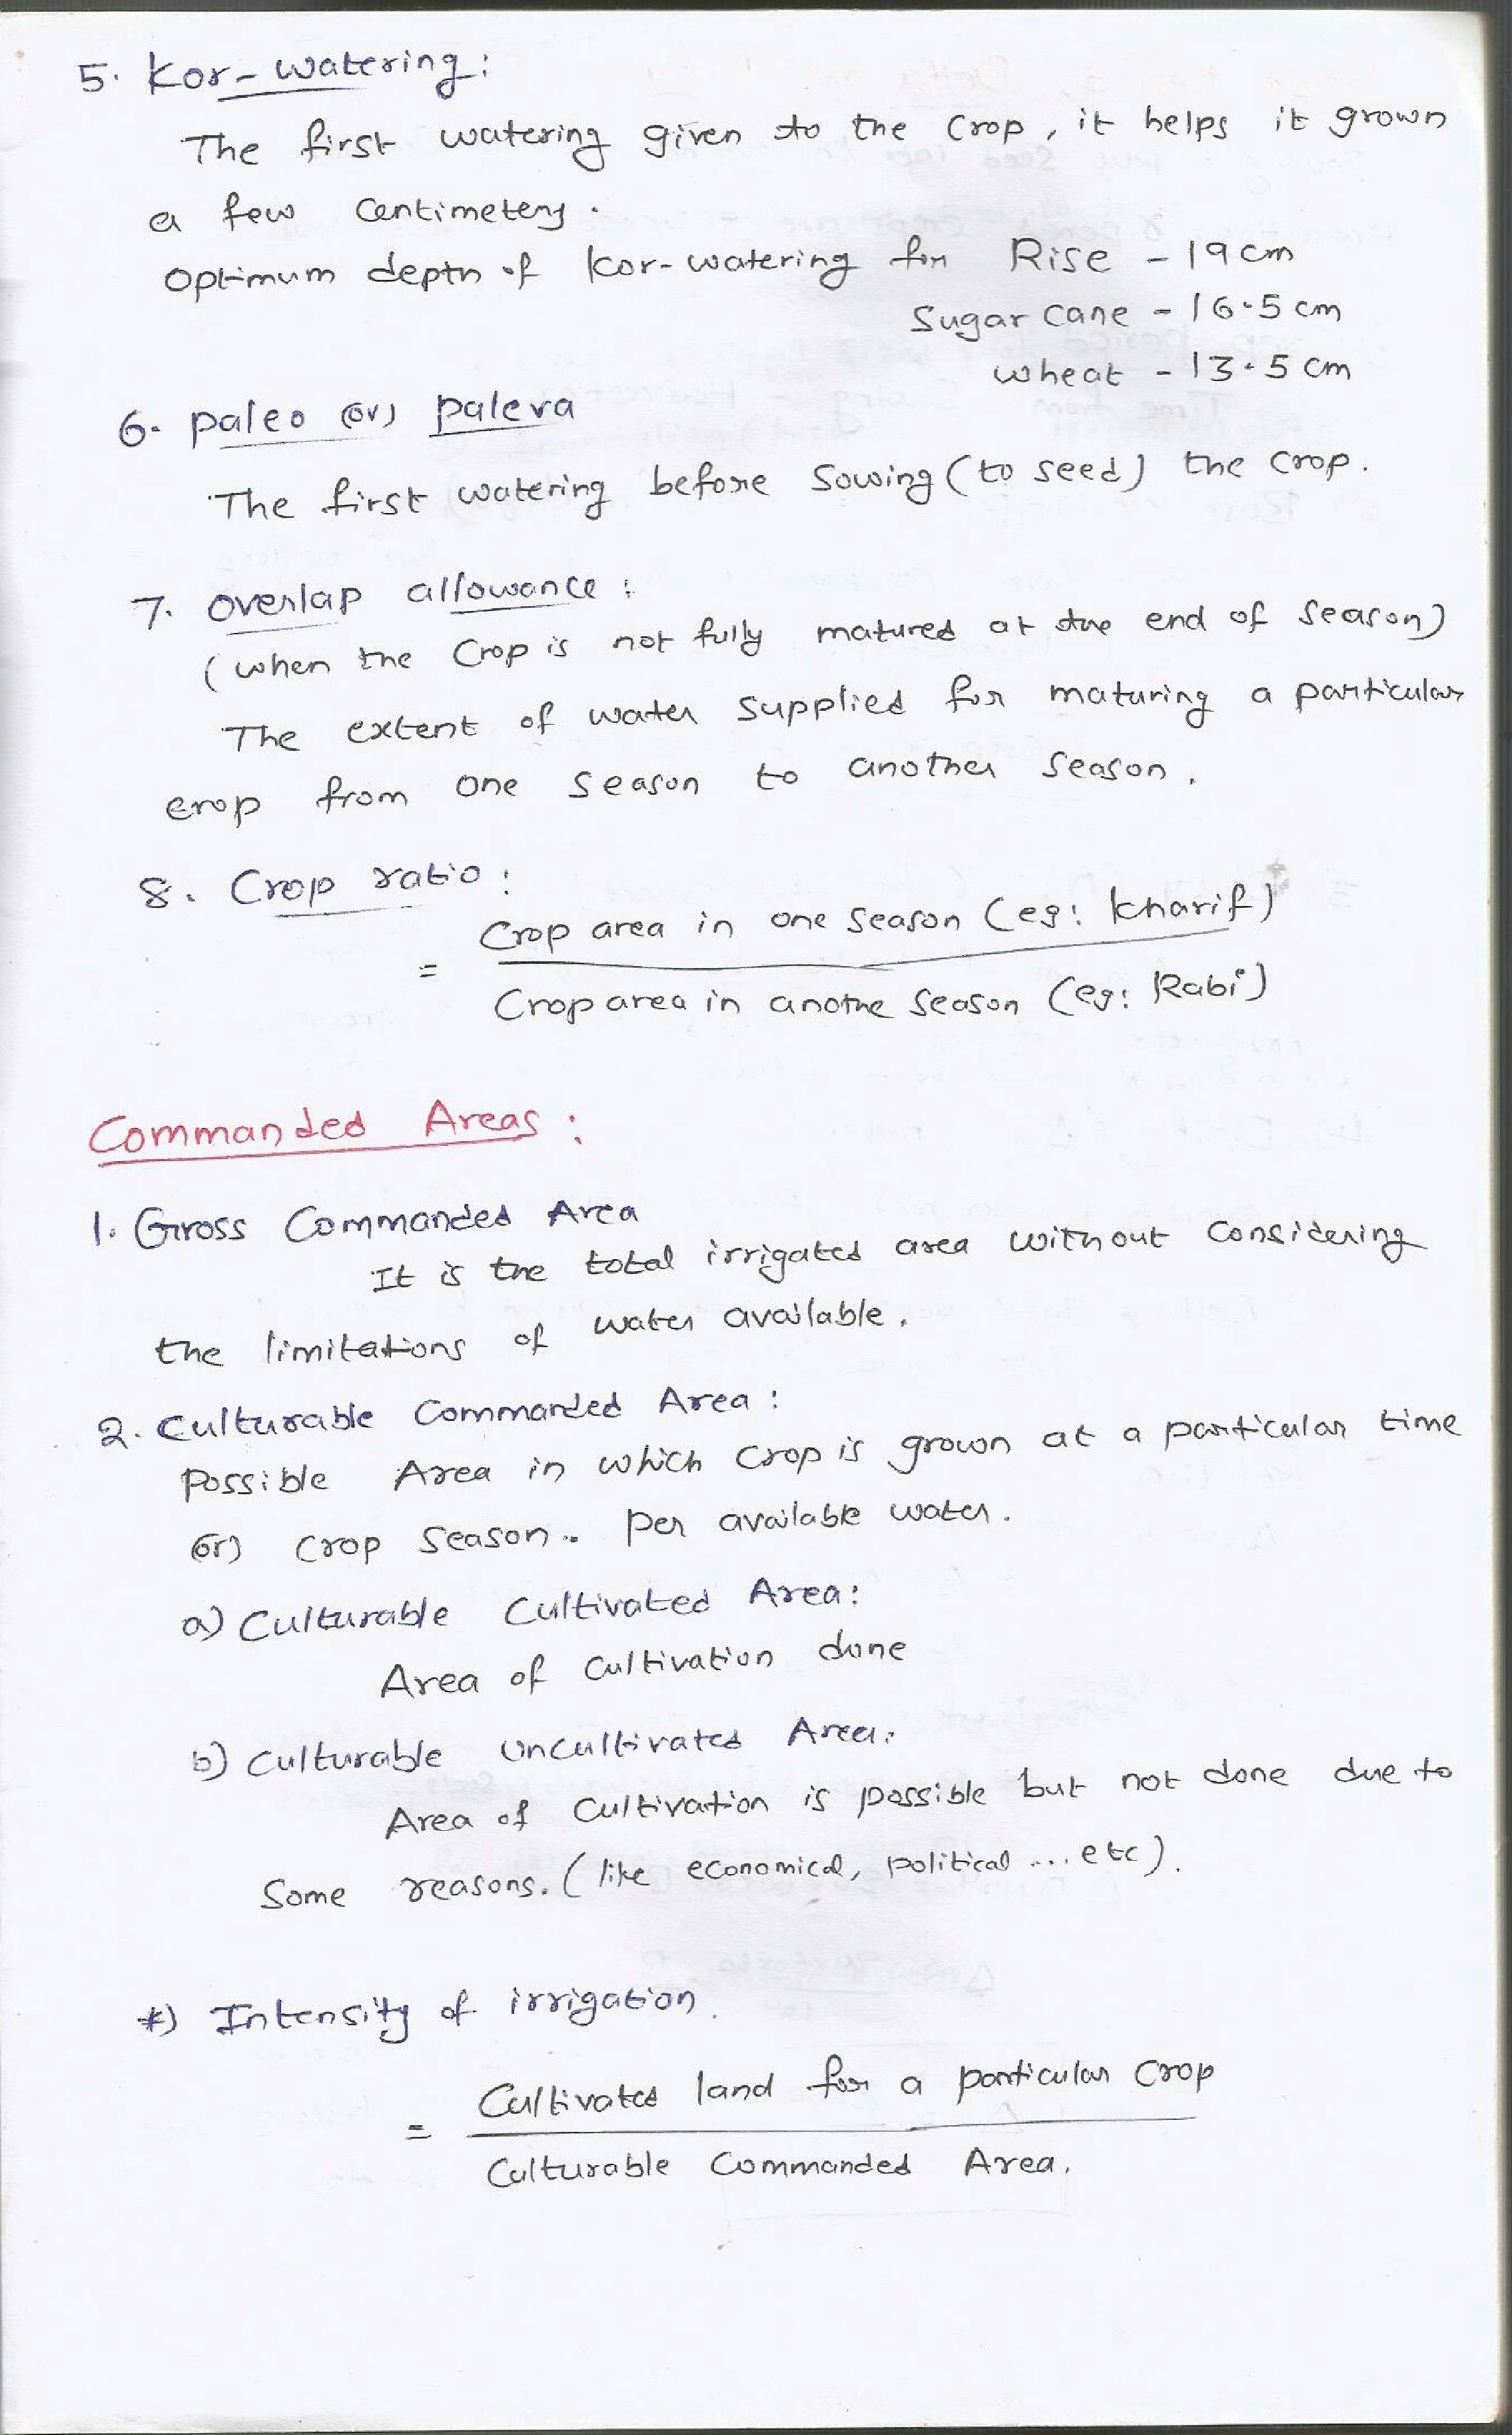 5. Kor-watering:
The first watering given to the crop, it helps it grown
a few centimeters.
Optimum depth of Kor-watering for Rise - 19 cm
Sugar cane - 16.5 cm
wheat - 13.5 cm
6. paleo (or) paleva
The first watering before sowing (to seed) the crop.
7. Overlap allowance:
(when the crop is not fully matured at the end of season)
The extent of water supplied for maturing a particular
crop from one season to another season.
8. Crop ratio:
= Crop area in one season (eg: kharif)
Crop area in anothe season (eg: Rabi)
Commanded Areas:
1. Gross Commanded Area
It is the total irrigated area without considering
the limitations of water available.
2. Culturable Commanded Area:
Possible Area in which crop is grown at a particular time
(or) crop season. per available water.
a) Culturable Cultivated Area:
Area of cultivation done
b) Culturable Uncultivated Area:
Area of cultivation is possible but not done due to
some reasons. (like economical, political ... etc).
*) Intensity of irrigation.
= Cultivated land for a particular crop
Culturable Commanded Area.